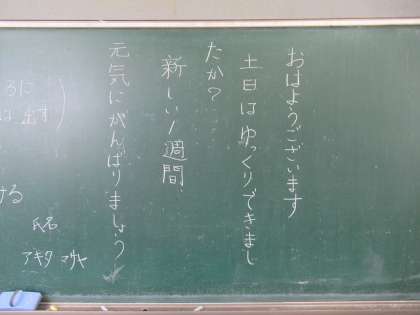 おはようございます
土日はゆっくりできまし
たか？
新しい1週間
元気にがんばりましょう
に
出す)
ける
氏名
アキタ マサヤ